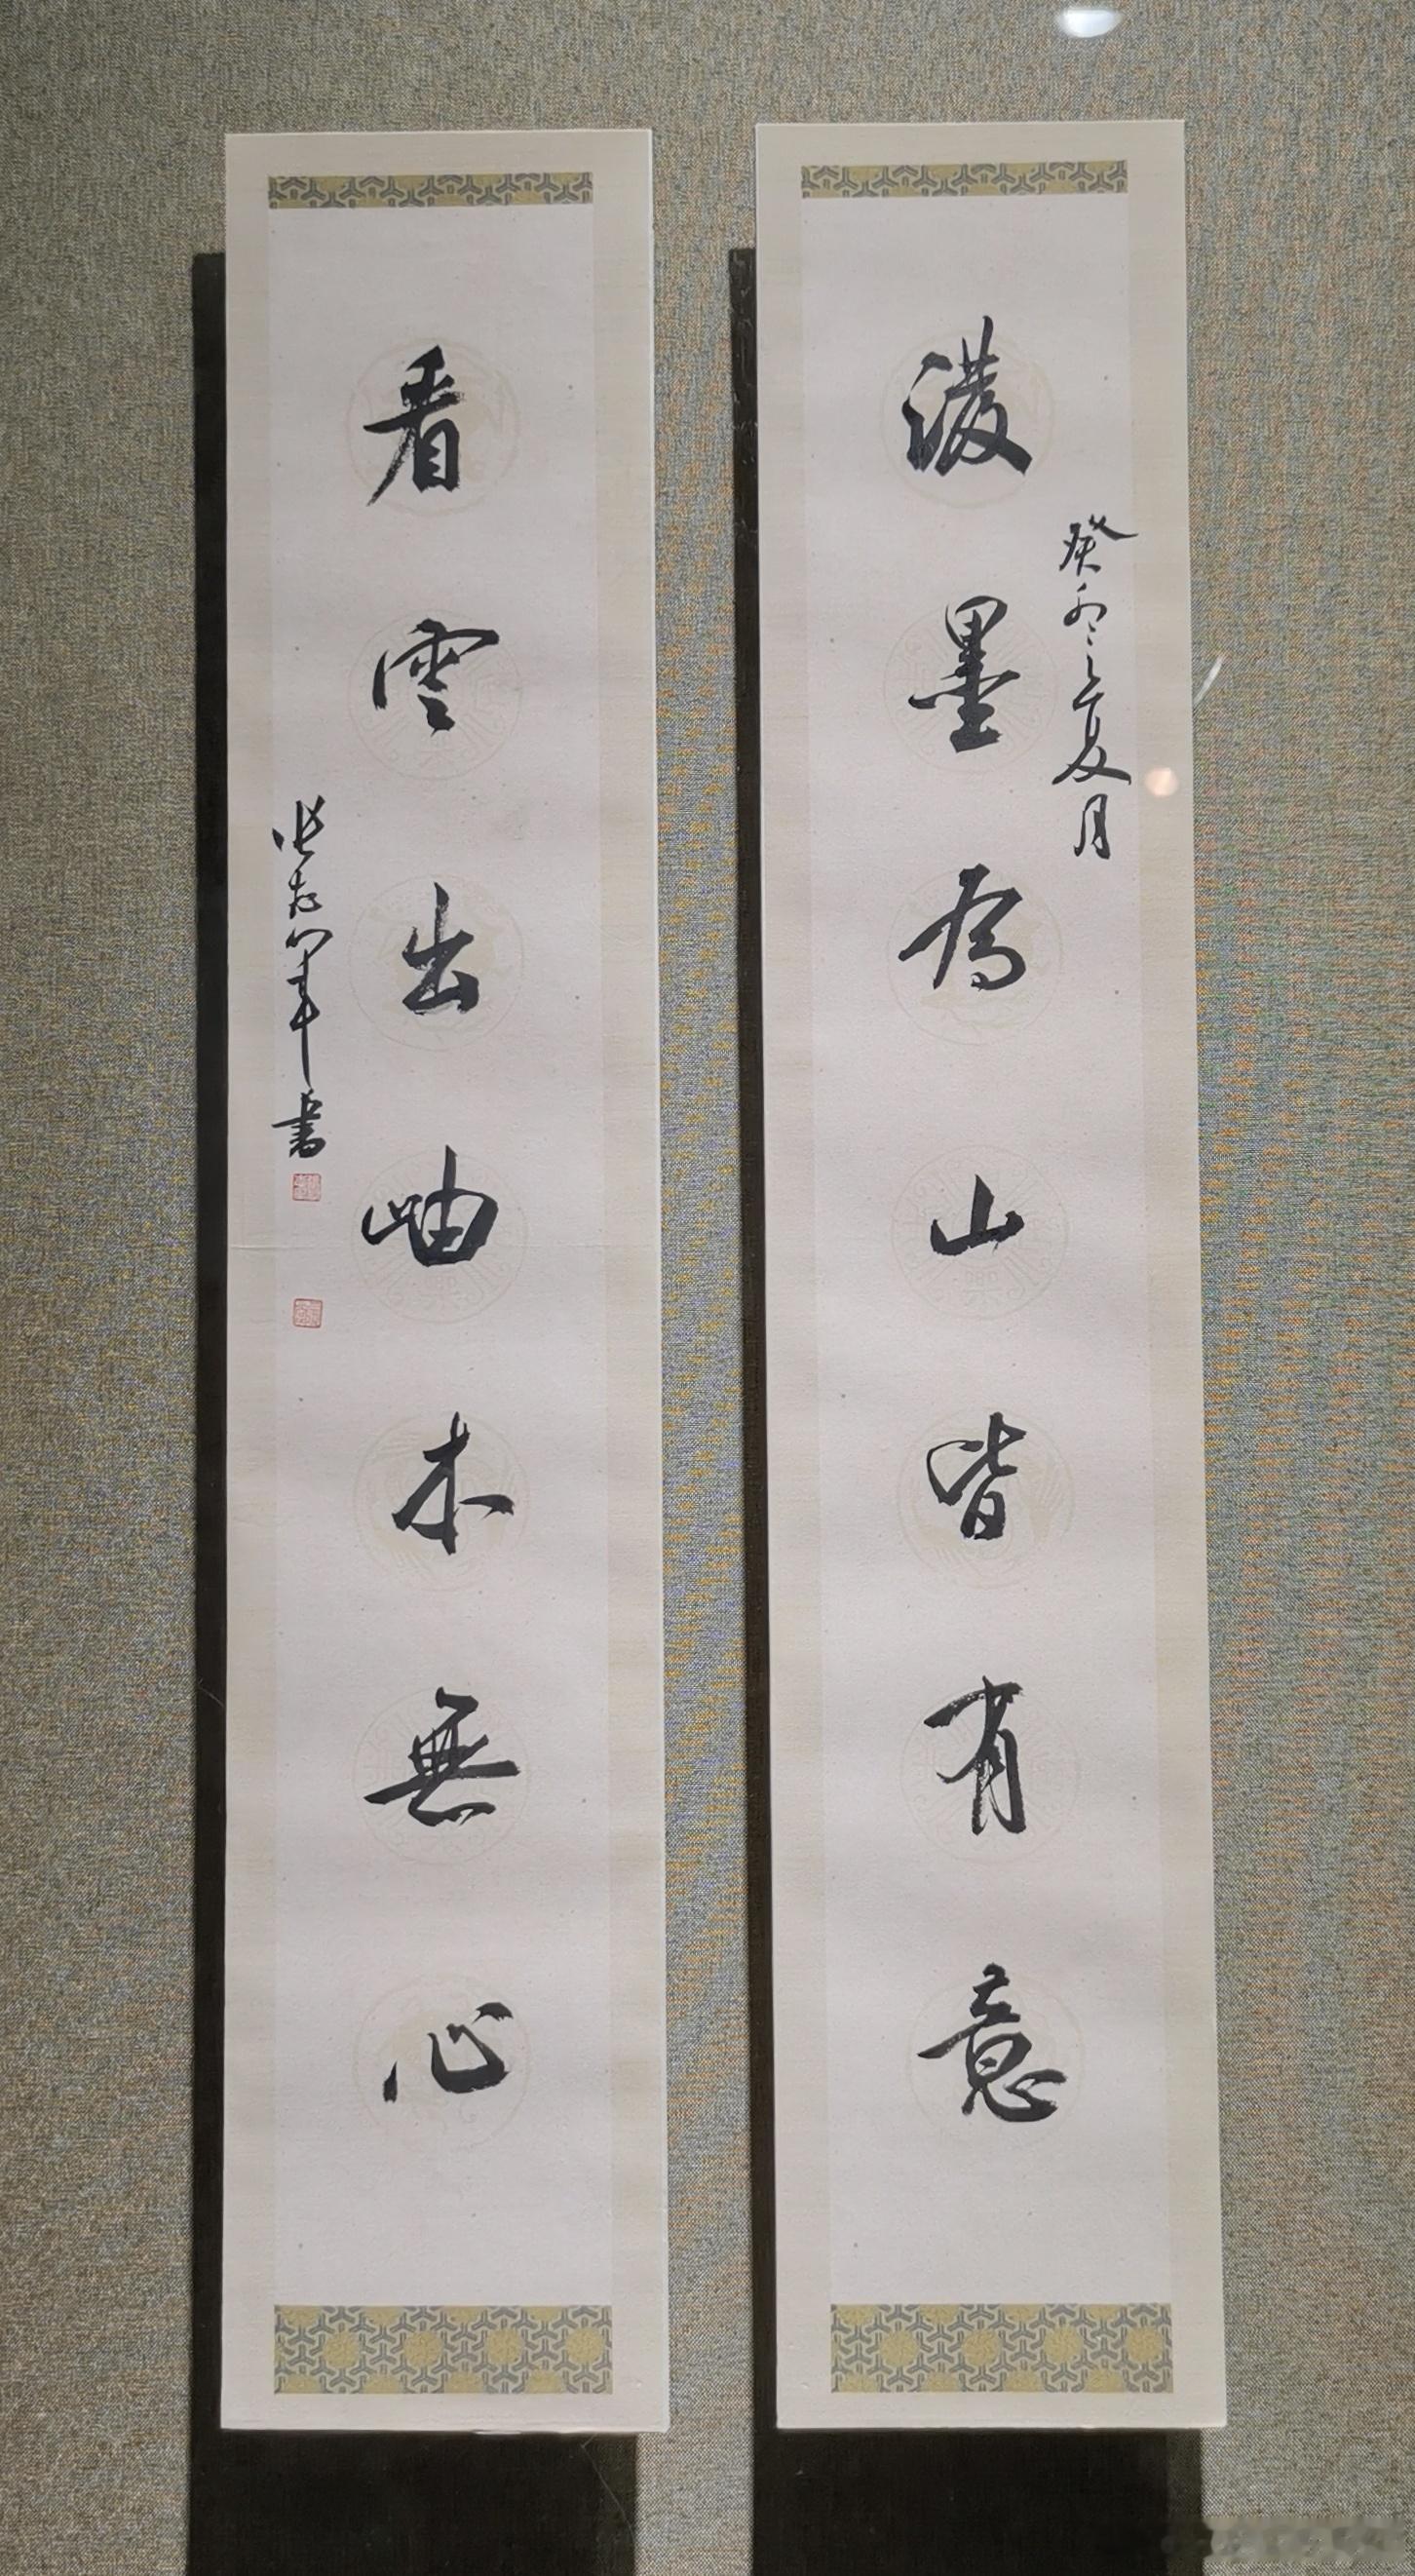 潑墨為山皆有意
癸卯之夏月
看雲出岫本無心
張志軍書